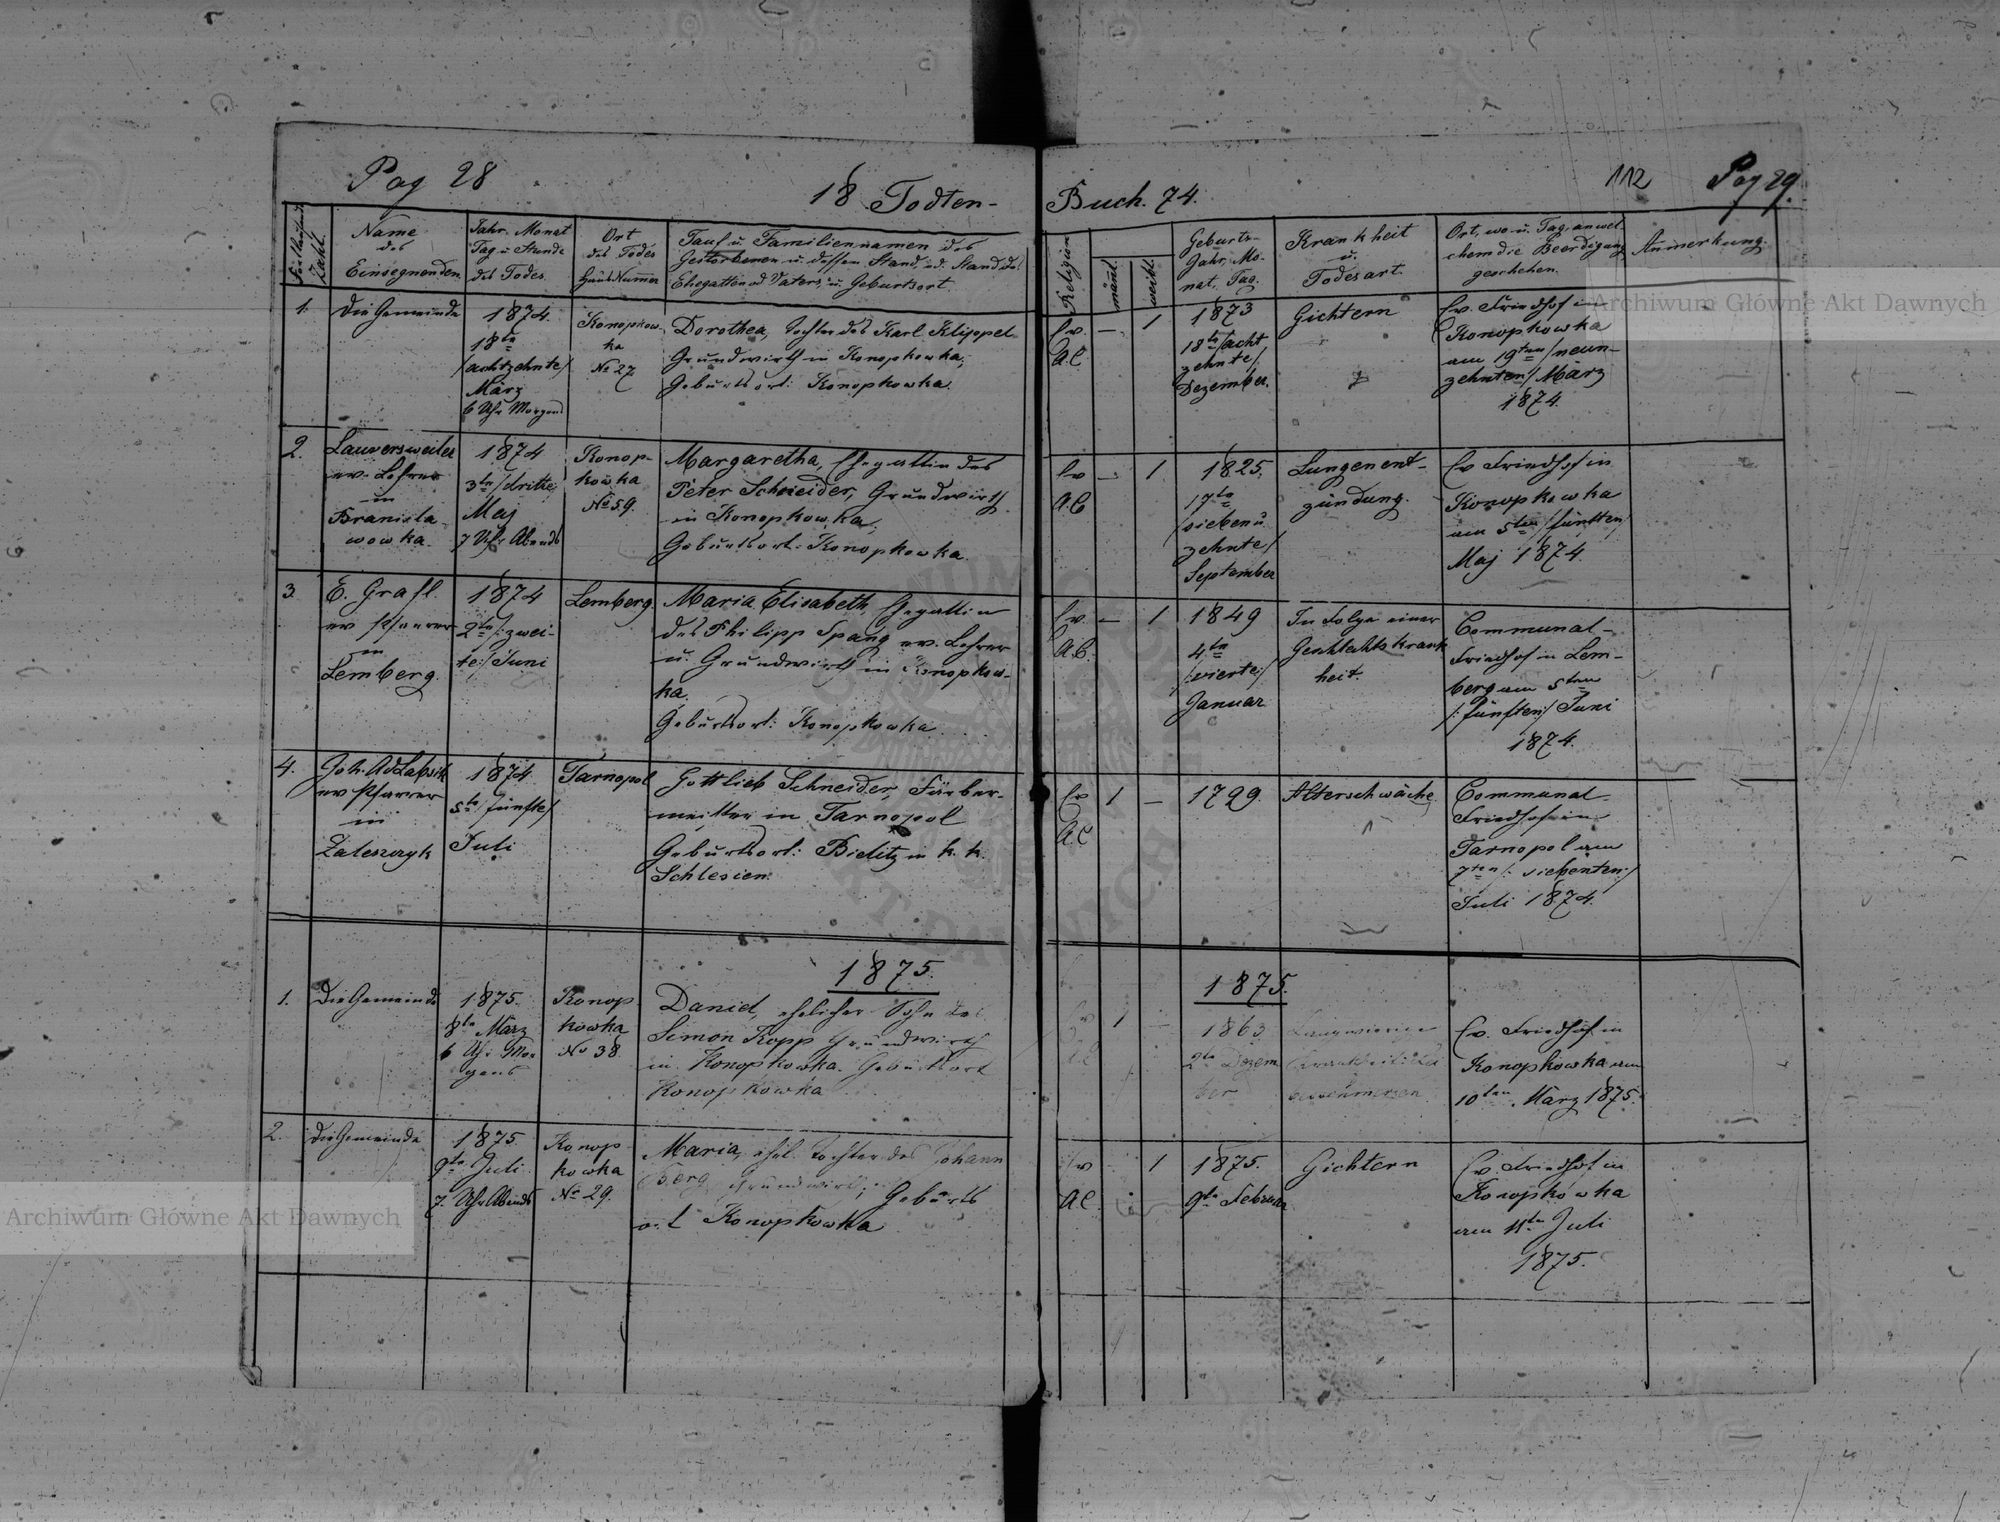 Pag 28
18 Todten-
Buch. 74.
112
Pag 29.
Fortlaufende
Zahl.
Name
des
Einsegnenden
Jahr. Monat
Tag u Stunde
des Todes
Ort
des Todes
Haus Numer
Tauf u Familiennamen des
Gestorbenen u. dessen Stand, od. Stand des
Ehegatten od Vaters, u Geburtsort.
Religion
mänl.
weibl.
Geburts-
Jahr, Mo-
nat, Tag.
Krankheit
u.
Todesart.
Ort, wo u. Tag, an wel-
chem die Beerdigung
geschehen.
Anmerkung.
1.
Die Gemeinde
1874.
18te
/achtzehnte/
März
6 Uhr Morgens
Konopkow-
ka
No 27
Dorothea, Tochter des Karl Klippel
Grundwirth in Konopkowka;
Geburtsort: Konopkowka.
Ev.
A.C.
—
1
1873
18te/acht
zehnte/
Dezember.
Gichtern
Ev. Friedhof in
Konopkowka
am 19ten/neun-
zehnten/ März
1874.
2.
Lauversweiler
ev. Lehrer
in
Branisla-
wowka.
1874
3te/dritte/
Maj
7 Uhr Abends
Konop-
kowka
No 59.
Margaretha, Ehegattin des
Peter Schneider, Grundwirth
in Konopkowka;
Geburtsort: Konopkowka.
Ev
A.C
—
1
1825.
17te
/sieben
zehnte/
September
Lungenent-
zündung.
Ev Friedhof in
Konopkowka
am 5ten/fünften/
Maj 1874.
3.
E. Grafl.
ev Pfarrer
in
Lemberg.
1874
2te/:zwei-
te:/ Juni
Lemberg.
Maria Elisabeth, Ehegattin
des Philipp Spang ev. Lehrer
u. Grundwirth in Konopkow-
ka.
Geburtsort: Konopkowka.
Ev.
A.C.
—
1
1849
4te
/vierte/
Januar
In Folge einer
Geschlechtskrank
heit.
Communal-
Friedhof in Lem-
berg am 5ten
/:fünften:/ Juni
1874.
4.
Joh. Ad Labsik
ev Pfarrer
in
Zaleszczyk
1874.
5te/fünfte/
Juli
Tarnopol
Gottlieb Schneider, Färber-
meister in Tarnopol
Geburtsort: Bielitz in k. k.
Schlesien.
Ev
A.C
1
—
1799.
Alterschwäche
Communal-
Friedhof in
Tarnopol am
7ten/: siebenten:/
Juli 1874.
1875.
1875.
1.
Die Gemeinde
1875.
8te März
6 Uhr Mor
gens
Konop
kowka
No 38
Daniel, ehelicher Sohn des
Simon Kopp Grundwirth
in Konopkowka. Geburtsort
Konopkowka
1
—
1863
2te Dezem
ber
Langwierige
Ev. Friedhof in
Konopkowka am
10ten März 1875.
2.
Die Gemeinde
1875.
9te Juli
7. Uhr Abends
Konop
kowka
No 29.
Maria, ehel. Tochter des Johann
Berg Grundwirt; Geburts
ort Konopkowka
Ev
A.C.
1
1875.
9te Februar
Gichtern
Ev. Friedhof in
Konopkowka
am 11ten Juli
1875.
Archiwum Główne Akt Dawnych
Archiwum Główne Akt Dawnych